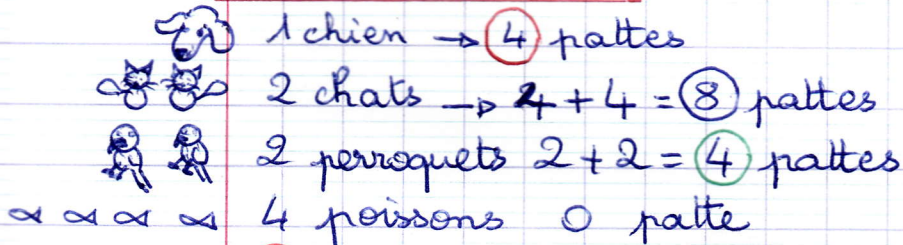 1 chien → 4 pattes
2 chats → 4 + 4 = 8 pattes
2 perroquets 2 + 2 = 4 pattes
4 poissons 0 patte